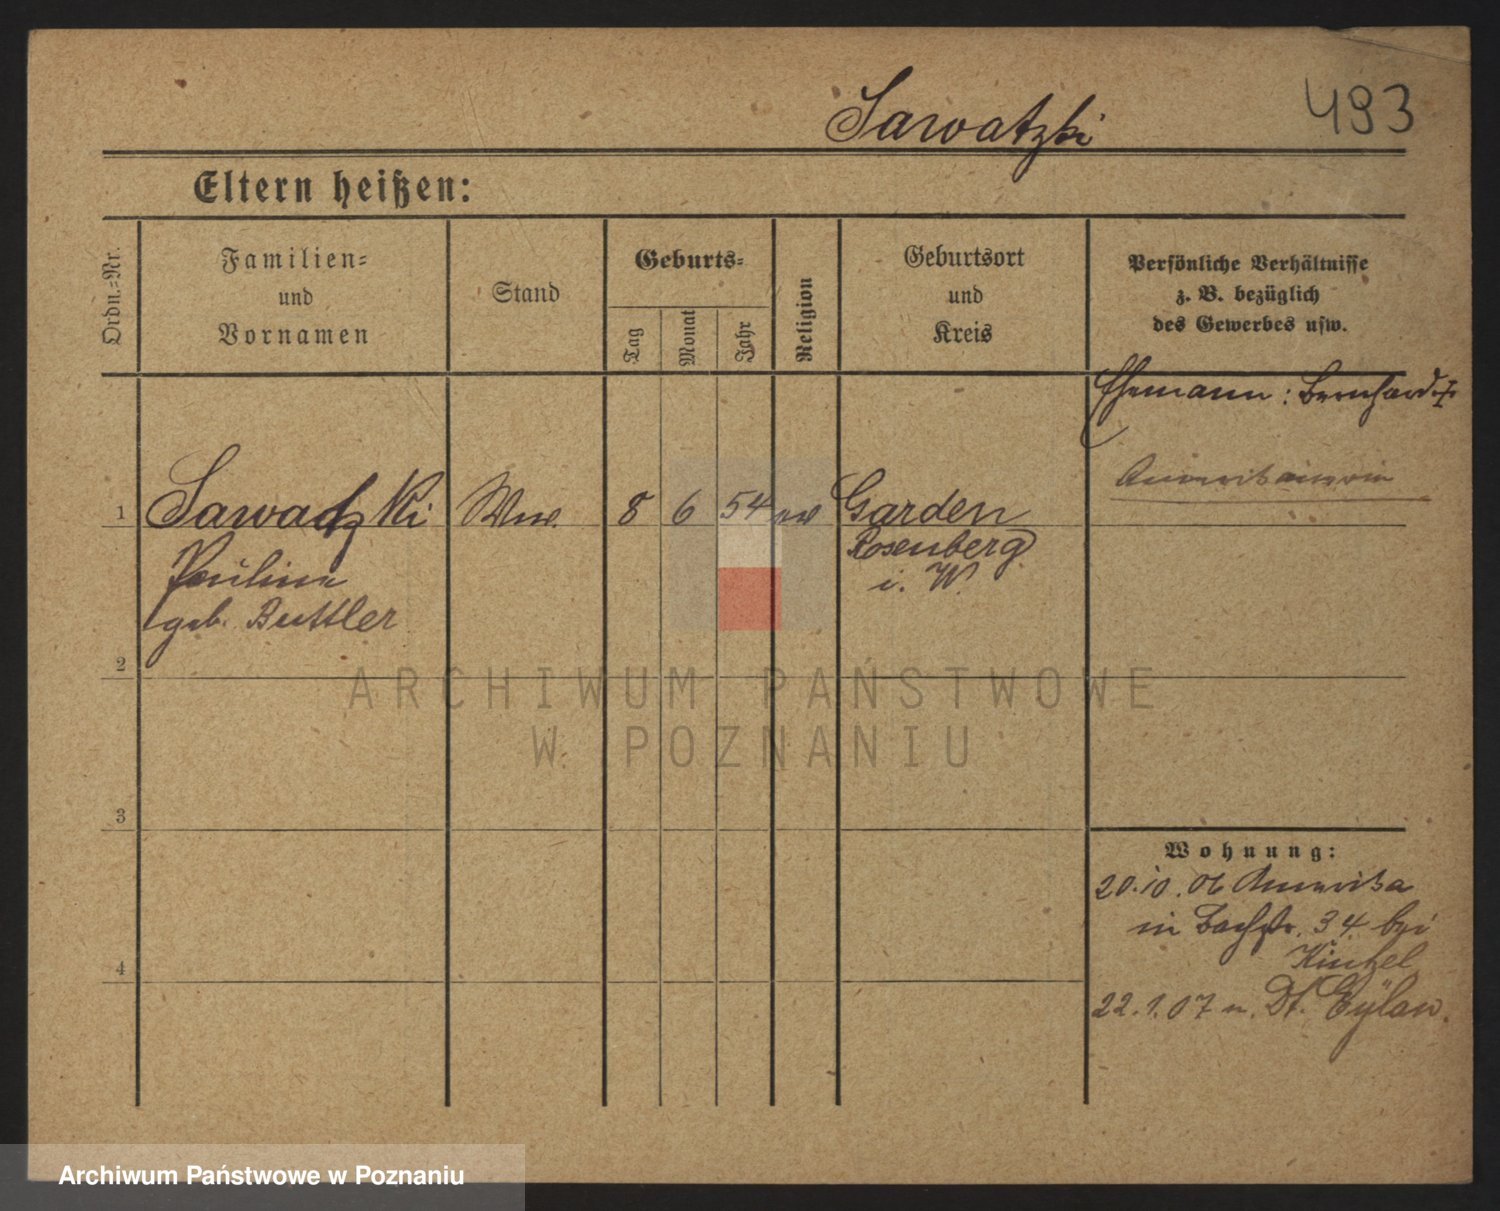 Sawatzki
493
Eltern heißen:
Ordn.=Nr.
Familien=
und
Vornamen
Stand
Geburts=
Tag
Monat
Jahr
Religion
Geburtsort
und
Kreis
Persönliche Verhältnisse
z. B. bezüglich
des Gewerbes usw.
Ehemann: Bernhard †
Amerikanerin
1 Sawadzki Wwe. 8 6 54 ev Garden
Pauline
geb. Buttler
Rosenberg
i. W.
2
3
4
Wohnung:
20.10.06 Amerika
in Bachstr. 34 bei
Kintzel
22.1.07 n. Dt. Eylau.
ARCHIWUM PAŃSTWOWE
W POZNANIU
Archiwum Państwowe w Poznaniu